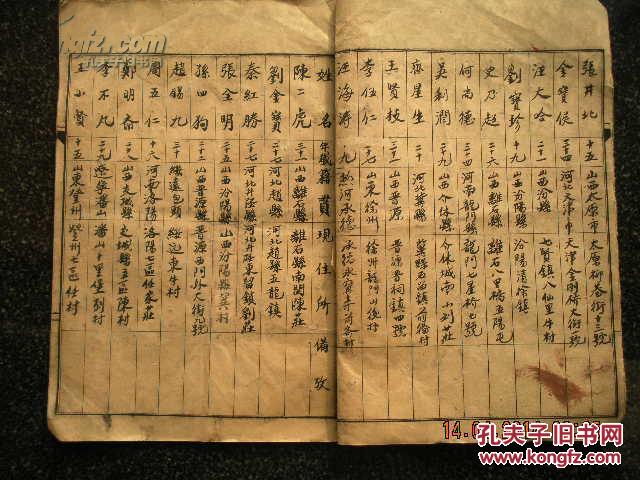 張井北 十五 山西太原市 太原柳巷街十三號
金寶俊 二十四 河北天津市 天津金剛橋大街一號
汪大哈 二十一 山西汾縣 七賢鎮八仙里牛村
劉寶珍 十九 山西汾陽縣 汾陽清徐鎮
史乃超 二十六 山西離石縣 離石八里橋五陽屯
何尚德 三十四 河南龍門縣 龍門七星橋七號
吳利潤 二十九 山西介休縣 介休城南小刘莊
齊星生 二十 河北冀縣 冀縣石西鎮前橋村
王賢枝 二十一 山西晋源 晋源晋祠鎮四號
李伍仁 二十七 山東徐州 徐州龍門山後村
汪海濤 十九 熱河承德 承德永寶寺前各村
姓名 年歲 籍貫 現住所 備攷
陳二虎 三十一 山西離石縣 離石縣南関陳莊
劉金寶 二十二 河北趙縣 河北趙縣五龍鎮
秦紅勝 二十七 河北井陘縣 河北井陘東留鎮劉莊
張全明 二十五 山西汾陽縣 山西汾陽縣里六村
孫四狗 二十二 山西晋源縣 晋源西門外大街九號
趙錫九 三十 綏遠包頭 綏远東牛村
周五仁 十六 河南洛陽 洛陽七區任家莊
鄭明斋 二十八 山西文城縣 文城縣五區陳村
李不凡 二十九 遼寧番山 潘山十里堡刘村
王小賢 十五 山東登州 登州七區任村
孔夫子旧书网
www.kongfz.com